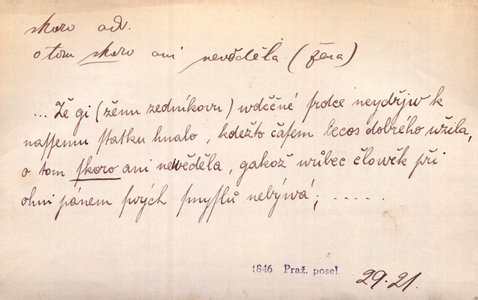 skoro adv.
o tom skoro ani nevěděla (žena)
... Že gi (ženu zedníkovu) wděčné srdce neydřjw k
nassemu statku hnalo, kdežto časem leccos dobrého užila,
o tom skoro ani newěděla, gakož wůbec člowěk při
ohni pánem swých smyslů nebýwá; .....
1846 Praž. posel.
29.21.